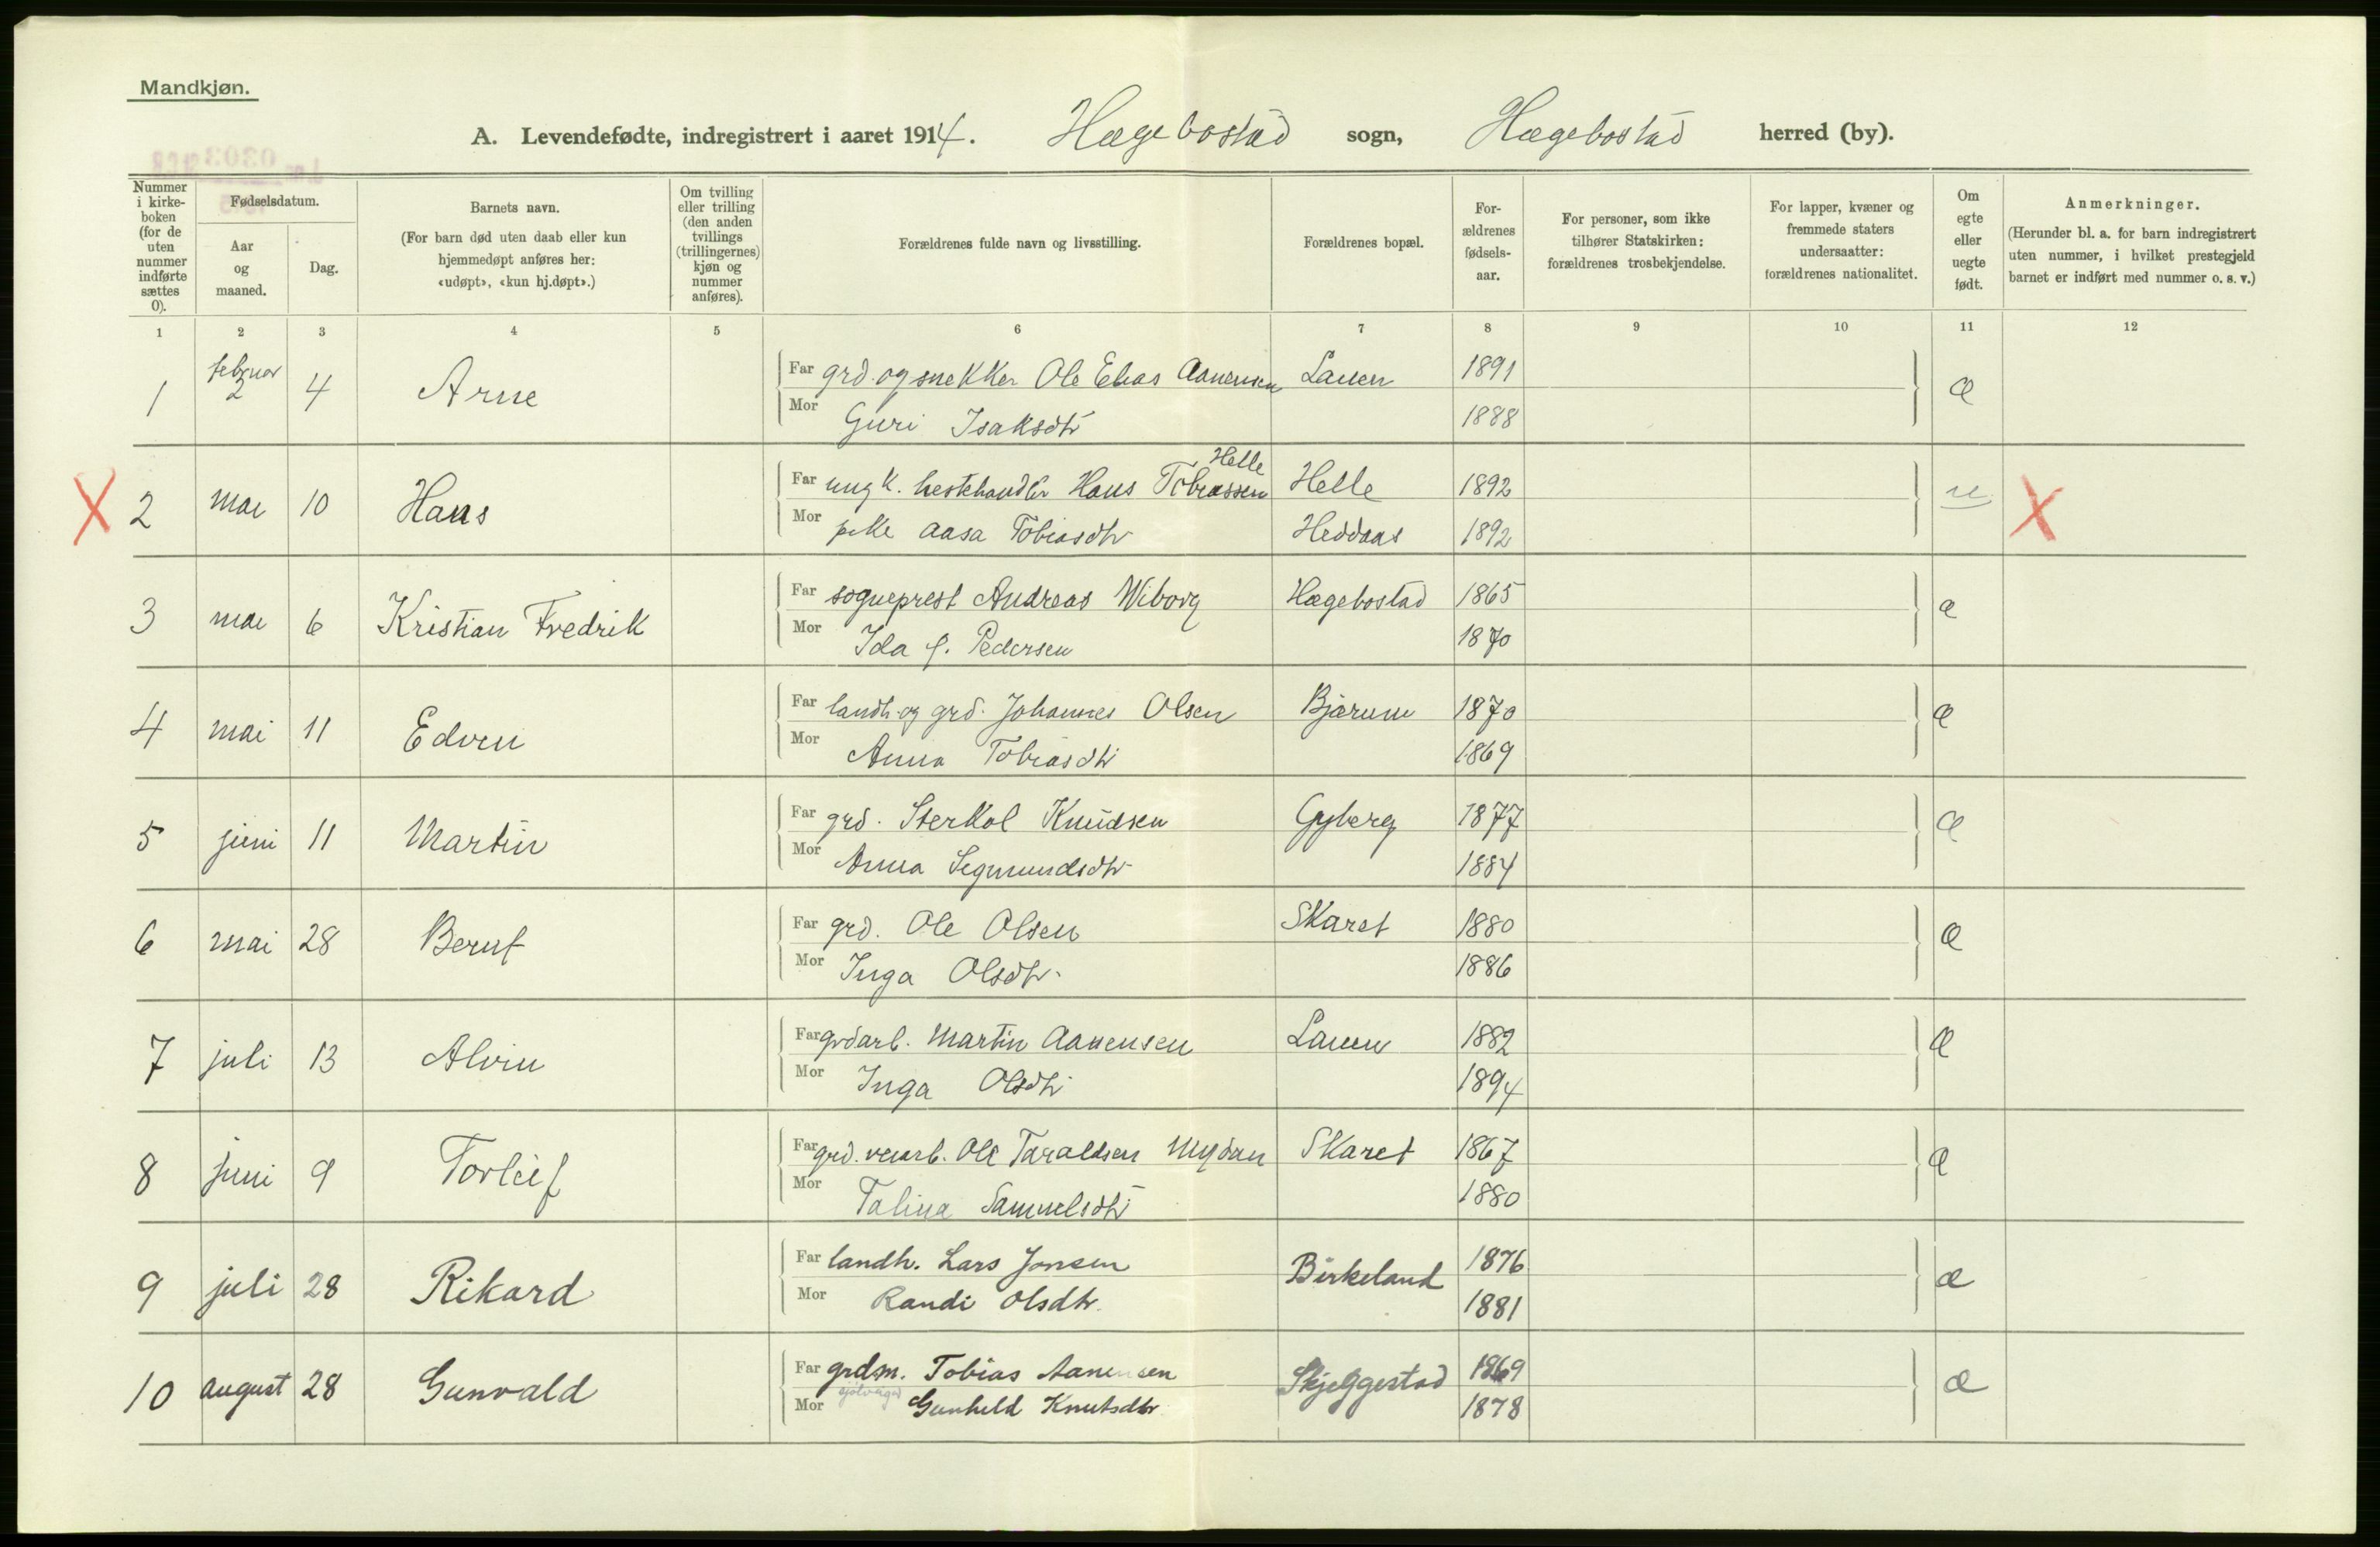 Mandkjøn.
A. Levendefødte, indregistrert i aaret 1914. Hægebostad sogn, Hægebostad herred (by).
Nummer i kirke-boken (for de uten nummer indførte sættes 0).
Fødselsdatum.
Aar og maaned.
Dag.
Barnets navn.
(For barn død uten daab eller kun hjemmedøpt anføres her: «udøpt», «kun hj.døpt».)
Om tvilling eller trilling (den anden tvillings (trillingernes) kjøn og nummer anføres).
Forældrenes fulde navn og livsstilling.
Forældrenes bopæl.
For-ældrenes fødsels-aar.
For personer, som ikke tilhører Statskirken: forældrenes trosbekjendelse.
For lapper, kvæner og fremmede staters undersaatter: forældrenes nationalitet.
Om egte eller uegte født.
Anmerkninger.
(Herunder bl. a. for barn indregistrert uten nummer, i hvilket prestegjeld barnet er indført med nummer o. s. v.)
1 2 3 4 5 6 7 8 9 10 11 12
1 februar 2 4 Arne Far grd. og snekker Ole Elias Aanensen Lauen 1891 æ
Mor Guri Isaksdtr 1888
X 2 mai 10 Hans Far ungk. hestehandler Hans Tobiassen Helle Helle 1892 u X
Mor pike Aasa Tobiasdtr Heddaas 1892
3 mai 6 Kristian Fredrik Far sogneprest Andreas Wiborg Hægebostad 1865 æ
Mor Ida f. Pedersen 1870
4 mai 11 Edvin Far landh. og grd. Johannes Olsen Bjærum 1870 æ
Mor Anna Tobiasdtr 1869
5 juni 11 Martin Far grd. Sterkol Knudsen Gyberg 1877 æ
Mor Anna Segmundsdtr 1884
6 mai 28 Bernt Far grd. Ole Olsen Skaret 1880 æ
Mor Inga Olsdtr 1886
7 juli 13 Alvin Far grdarb. Martin Aanensen Lauen 1882 æ
Mor Inga Olsdtr 1894
8 juni 9 Torleif Far grd. veiarb. Ole Taraldsen Skaret 1867 æ
Mor Talina Samuelsdtr 1880
9 juli 28 Rikard Far landh. Lars Jonsen Birkeland 1876 æ
Mor Randi Olsdtr. 1881
10 august 28 Gunvald Far grdm. Tobias Aanensen Skjeggestad 1869 æ
Mor Gunhild Knutsdtr 1878